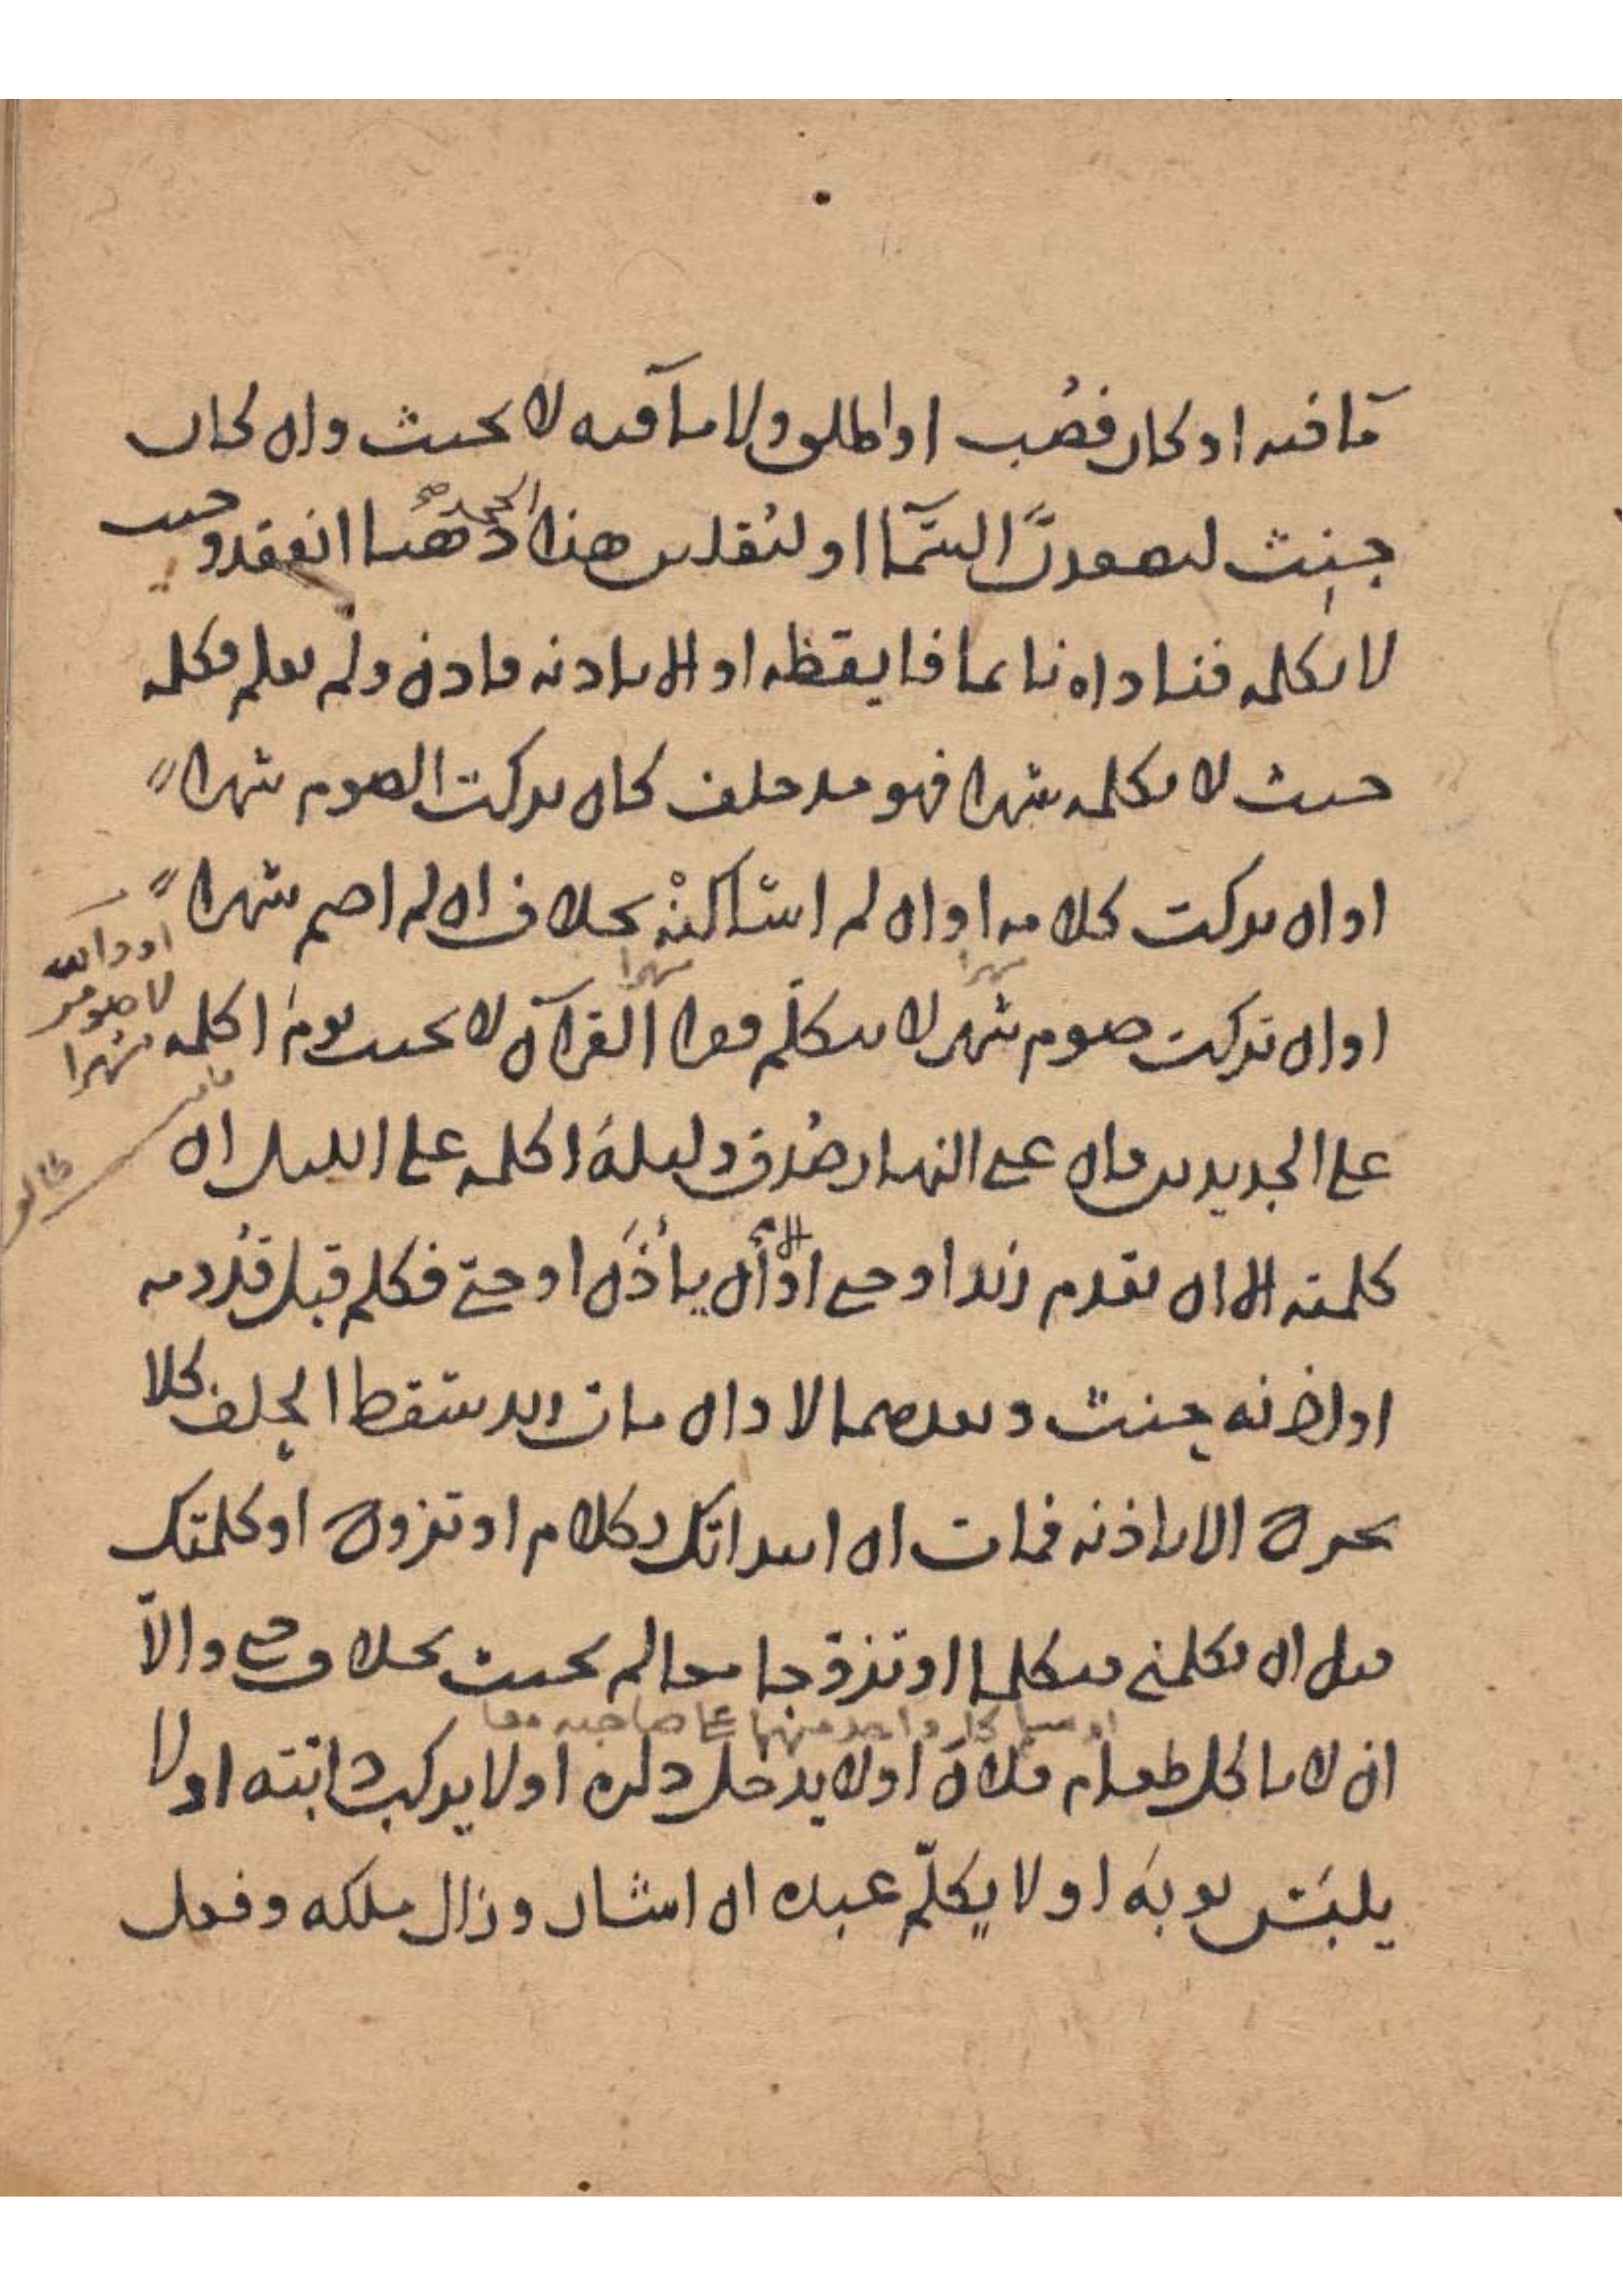 مآ فيه او كان فصُب او اطلق ولا مآ فيه لا يحنث وان كان
حِنِث ليصعدنَّ السَّمآ او ليُقلبن هذا الحجر ذهبا انعقد وحنث
لا يكلمه فناداه نائما فايقظه او الا باذنه فاذن ولم يعلم فكلمه
حنث لا يكلمه شهرا فهو مذ حلف كان تركت الصوم شهراً
او ان تركت كلامه او ان لم اساكنْه بخلاف ان لم اصم شهراً
او ان تركت صوم شهر لا يتكلّم فقرا القرآن لا يحنث يومَ اكلمه
او والله
لاصومن
شهرا
شهرا
شهرا
على الجديدين فان عنى النهار صُدق وليلةَ اكلمه على الليل ان
كلمته الا ان يقدم زيد او حتى او الا أن يأذَن او حتى فكلم قبل قُدومه
او اذنه حِنث وبعدهما لا وان مات زيد سقط الحِلف كلا
تخرج الا باذنه فمات ان ابتداتك بكلام او تزوج او كلمتك
قبل ان تكلمني فتكلما او تزوّجا معا لم يحنث بحلا وحى والاّ
او سلم كل واحد منهما على صاحبه معا
ان لا ياكل طعام فلان او لا يدخل داره او لا يركب دابّته او لا
يلبَس ثوبَه او لا يُكلّم عبده ان اشار وزال ملكه وفعل